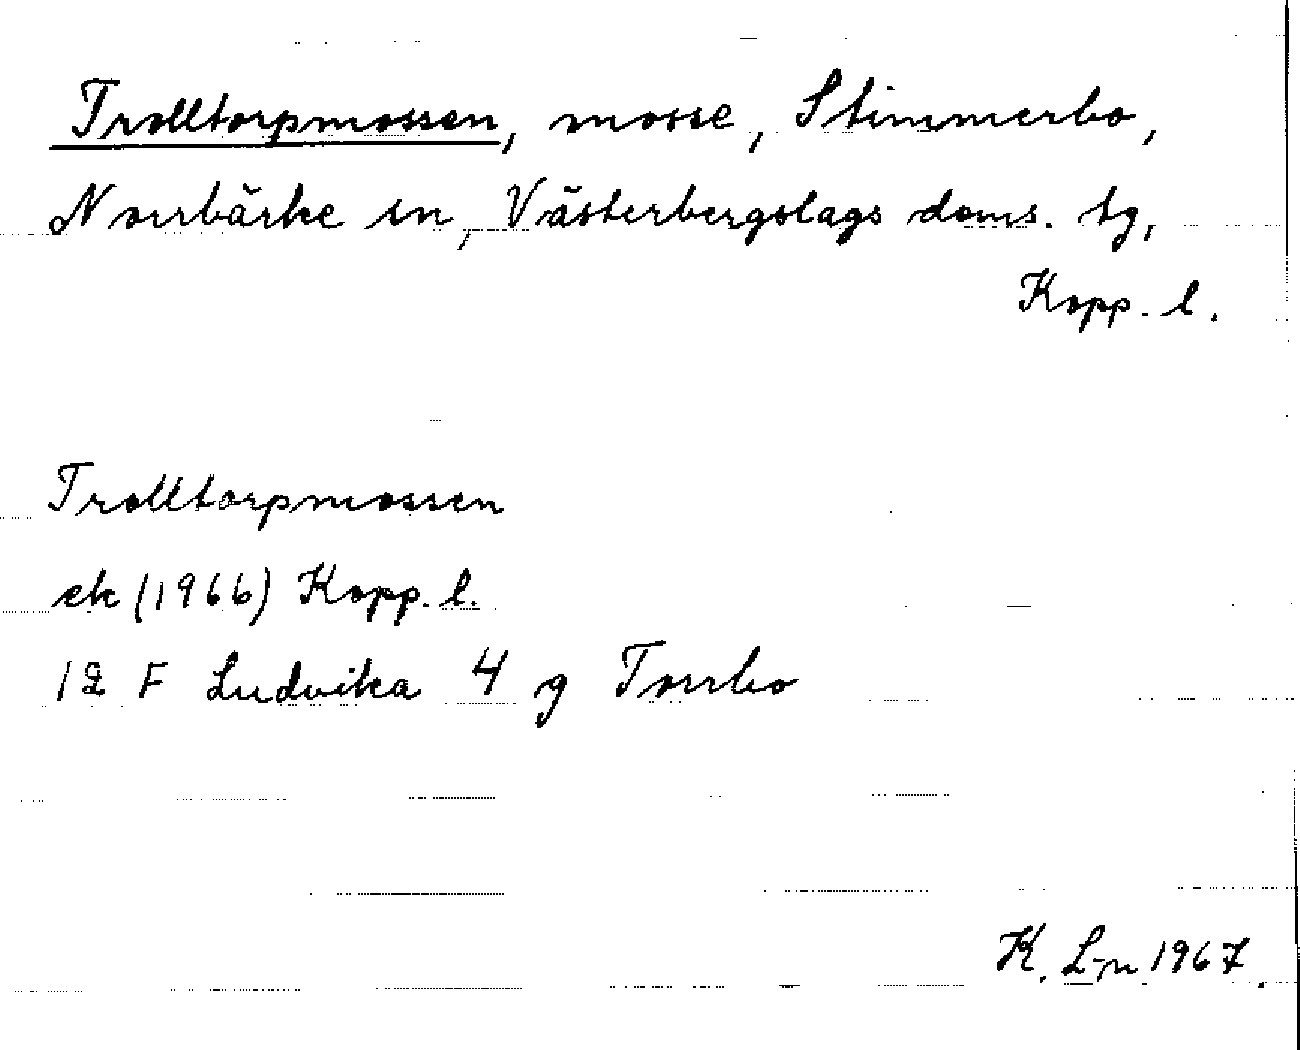 Trolltorpmossen, mosse, Stimmerbo,
Norrbärke sn, Västerbergslags doms. tg,
Kopp. l.
Trolltorpmossen
ek (1966) Kopp. l.
12 F Ludvika 4 g Torrbo
K. L-n 1967.